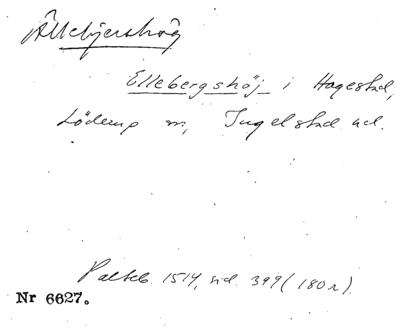 Ällebjershög
Ellebergshöj i Hagestad,
Löderup sn, Ingelstad hd.
Palteb. 1514, sid. 399 (180 r).
Nr 6627.